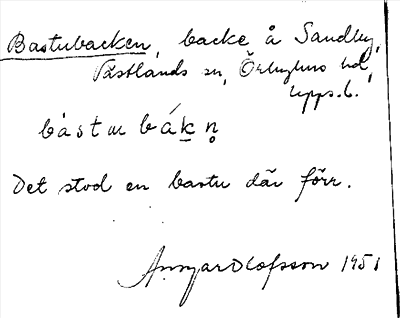 Bastubacken, backe å Sandby,
Västlands sn, Örbyhus hd,
Upps. l.
bástu bákn̥
Det stod en bastu där förr.
Ansgar Olofsson 1951